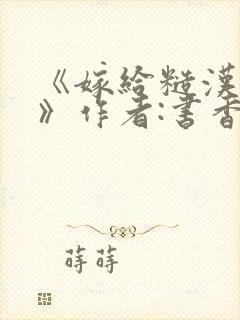 《嫁给糙漢
》作者:書香
蒔蒔